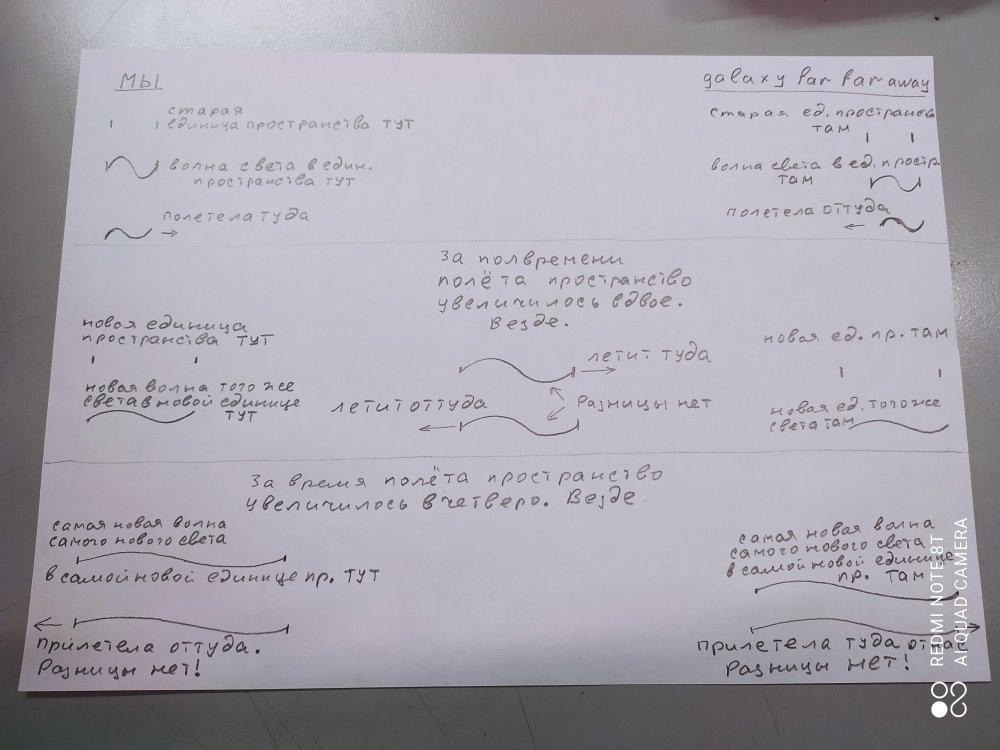 МЫ
старая
единица пространства ТУТ
волна света в един.
пространства тут
полетела туда
galaxy far far away
старая ед. пространсва
там
волна света в ед. простр.
там
полетела оттуда
За полвремени
полёта пространство
увеличилось вдвое.
Везде.
новая единица
пространства ТУТ
новая волна того же
света в новой единице
ТУТ
летит туда
летит оттуда
Разницы нет
новая ед. пр. там
новая ед. того же
света там
За время полёта пространство
увеличилось вчетверо. Везде
самая новая волна
самого нового света
в самой новой единице пр. ТУТ
прилетела оттуда.
Разницы нет!
самая новая волна
самого нового света
в самой новой единице
пр. там
прилетела туда
Разницы нет!
REDMI NOTE 8T
AI QUAD CAMERA